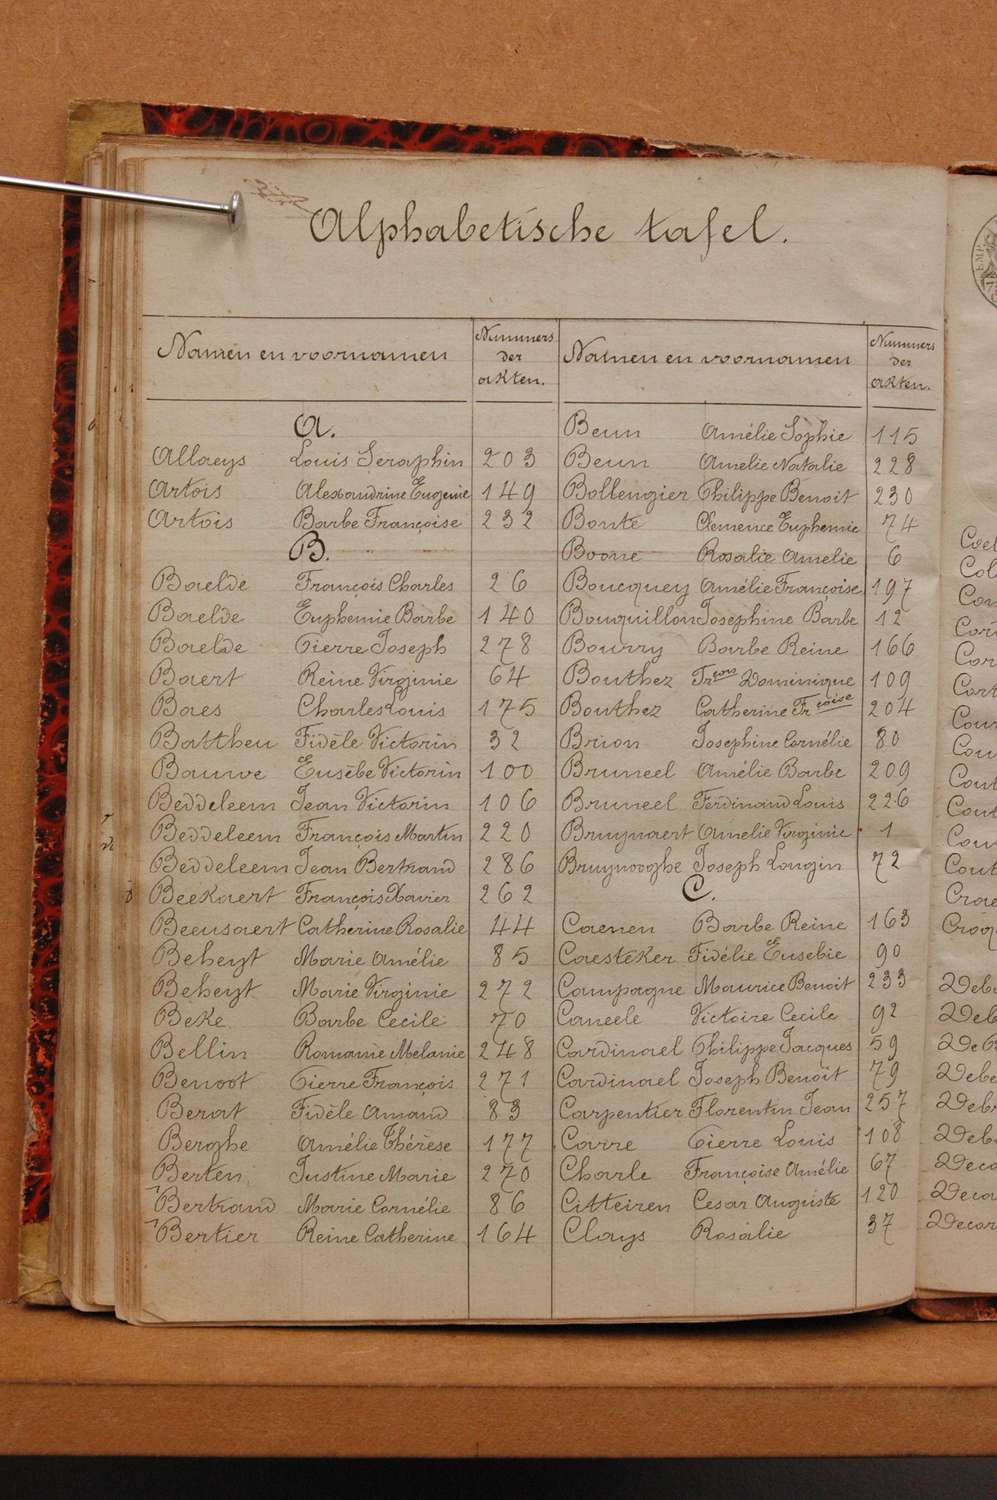 Alphabetische tafel.
Namen en voornamen
Nummers
der
akten.
A.
Allaeys Louis Seraphin 203
Artois Alexandrine Eugenie 149
Artois Barbe Françoise 232
B.
Baelde François Charles 26
Baelde Euphémie Barbe 140
Baelde Pierre Joseph 278
Baert Reine Virginie 64
Baes Charles Louis 175
Battheu Fidèle Victorin 32
Bauwe Eusèbe Victorin 100
Beddeleem Jean Victorin 106
Beddeleem François Martin 220
Beddeleem Jean Bertrand 286
Beekaert François Xavier 262
Beeusaert Catherine Rosalie 44
Beheyt Marie Amélie 85
Beheyt Marie Virginie 272
Beke Barbe Cecile 70
Bellin Romanie Melanie 248
Benoot Pierre François 271
Berat Fidèle Amand 83
Berghe Amélie Thérèse 177
Berten Justine Marie 270
Bertrand Marie Cornélie 86
Bertier Reine Catherine 164
Namen en voornamen
Nummers
der
akten.
Beun Amélie Sophie 115
Beun Amelie Natalie 228
Bollengier Philippe Benoit 230
Bonte Clemence Euphemie 74
Boone Rosalie Amelie 6
Boucquey Amélie Françoise 197
Bouquillon Josephine Barbe 12
Bourry Barbe Reine 166
Bouthez Frçois Dominique 109
Bouthez Catherine Frçoise 204
Brion Josephine Cornélie 80
Bruneel Amélie Barbe 209
Bruneel Ferdinand Louis 226
Bruynaert Amelie Virginie 1
Bruynooghe Joseph Longin 72
C.
Caenen Barbe Reine 163
Caesteker Fidélie Eusebie 90
Campagne Maurice Benoit 233
Caneele Victoire Cecile 92
Cardinael Philippe Jacques 59
Cardinael Joseph Benoit 79
Carpentier Florentin Jean 257
Carre Pierre Louis 108
Charle Françoise Amélie 67
Citteiren Cesar Auguste 120
Clays Rosalie 37